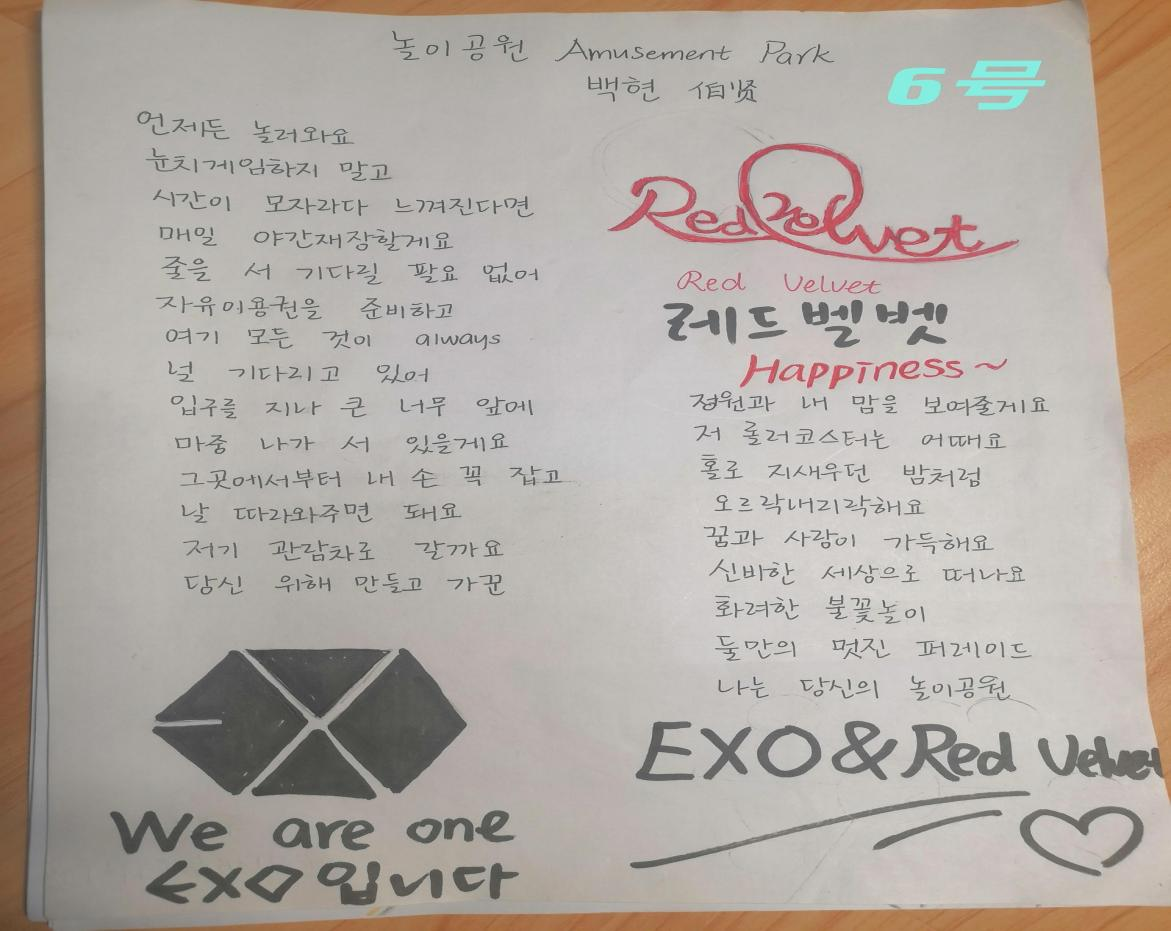 놀이공원 Amusement Park
백현 伯贤
6号
언제든 놀러와요
눈치게임하지 말고
시간이 모자라다 느껴진다면
매일 야간재장할게요
줄을 서 기다릴 팔요 없어
자유이용권을 준비하고
여기 모든 것이 always
널 기다리고 있어
입구를 지나 큰 너무 앞에
마중 나가 서 있을게요
그곳에서부터 내 손 꼭 잡고
날 따라와주면 돼요
저기 관람차로 갈까요
당신 위해 만들고 가꾼
We are one
EXO입니다
Red Velvet
Red Velvet
레드벨벳
Happiness~
정원과 내 맘을 보여줄게요
저 롤러코스터는 어때요
홀로 지새우던 밤처럼
오르락내리락해요
꿈과 사람이 가득해요
신비한 세상으로 떠나요
화려한 불꽃놀이
둘만의 멋진 퍼레이드
나는 당신의 놀이공원
EXO&Red Velvet